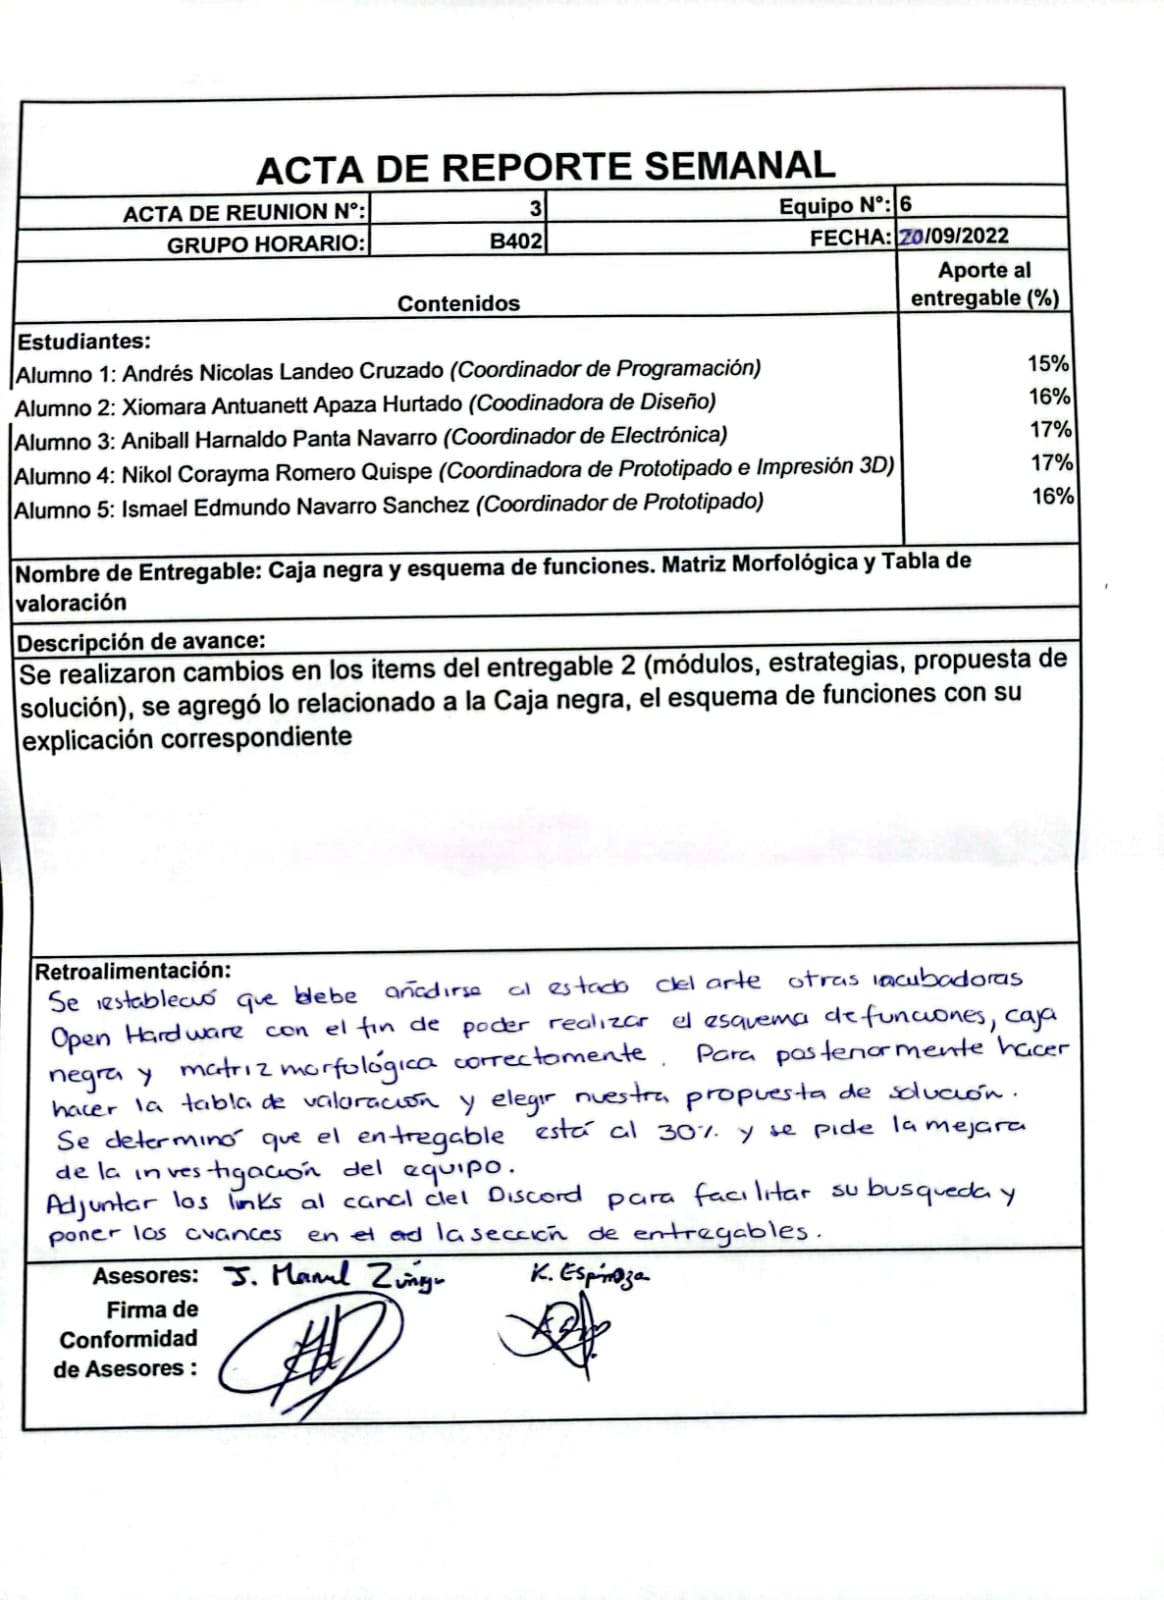 ACTA DE REPORTE SEMANAL
ACTA DE REUNION N°: 3 Equipo N°: 6
GRUPO HORARIO: B402 FECHA: 20/09/2022
Contenidos Aporte al entregable (%)
Estudiantes:
Alumno 1: Andrés Nicolas Landeo Cruzado (Coordinador de Programación) 15%
Alumno 2: Xiomara Antuanett Apaza Hurtado (Coodinadora de Diseño) 16%
Alumno 3: Aniball Harnaldo Panta Navarro (Coordinador de Electrónica) 17%
Alumno 4: Nikol Corayma Romero Quispe (Coordinadora de Prototipado e Impresión 3D) 17%
Alumno 5: Ismael Edmundo Navarro Sanchez (Coordinador de Prototipado) 16%
Nombre de Entregable: Caja negra y esquema de funciones. Matriz Morfológica y Tabla de
valoración
Descripción de avance:
Se realizaron cambios en los items del entregable 2 (módulos, estrategias, propuesta de
solución), se agregó lo relacionado a la Caja negra, el esquema de funciones con su
explicación correspondiente
Retroalimentación:
Se restableció que debe añadirse al estado del arte otras incubadoras
Open Hardware con el fin de poder realizar el esquema de funciones, caja
negra y matriz morfológica correctamente. Para posteriormente hacer
hacer la tabla de valoración y elegir nuestra propuesta de solución.
Se determinó que el entregable está al 30% y se pide la mejora
de la investigación del equipo.
Adjuntar los links al canal del Discord para facilitar su busqueda y
poner los avances en el la sección de entregables.
Asesores: J. Manuel Zúñiga K. Espinoza
Firma de
Conformidad
de Asesores :